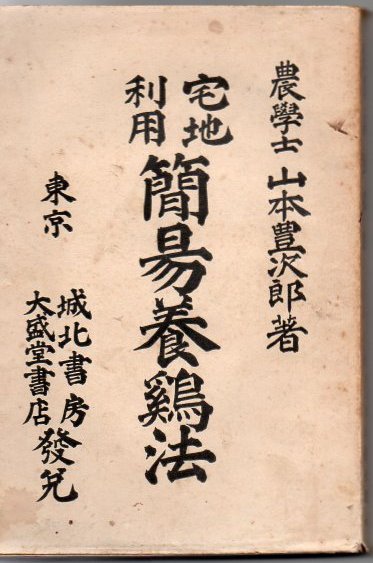 農學士 山本豊次郎著
宅地
利用
簡易養鷄法
東京
城北書房
大盛堂書店
發兌